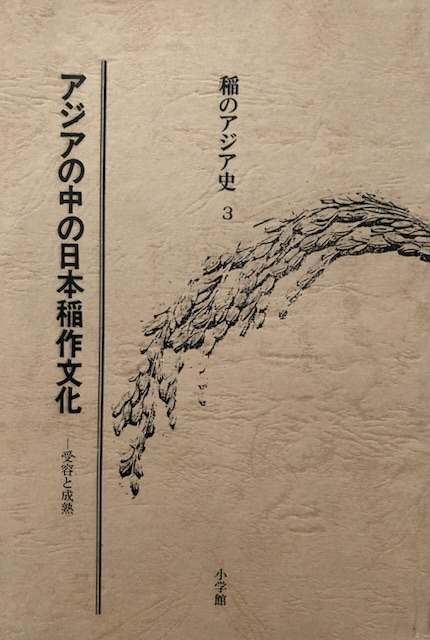 稲のアジア史 3
アジアの中の日本稲作文化
―受容と成熟
小学館